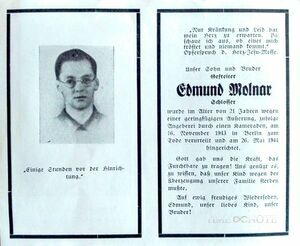 "Einige Stunden vor der Hinrich-
tung."
"Nur Kränkung und Leid hat
mein Herz zu erwarten. Da
schaue ich aus, ob einer mich
tröstet und niemand kommt."
Opferspruch d. Herz-Jesu-Messe.
Unser Sohn und Bruder
Gefreiter
Edmund Molnar
Schlosser
wurde im Alter von 21 Jahren wegen
einer geringfügigen Äußerung, zufolge
Angeberei durch einen Kameraden, am
16. November 1943 in Berlin zum
Tode verurteilt und am 26. Mai 1944
hingerichtet.
Gott gab uns die Kraft, das
Furchtbare zu tragen! Uns genügt es,
zu wissen, daß unser Kind wegen der
Überzeugung unserer Familie sterben
mußte.
Auf ewig freudiges Wiedersehen,
Edmund, unser liebes Kind, unser
Bruder!